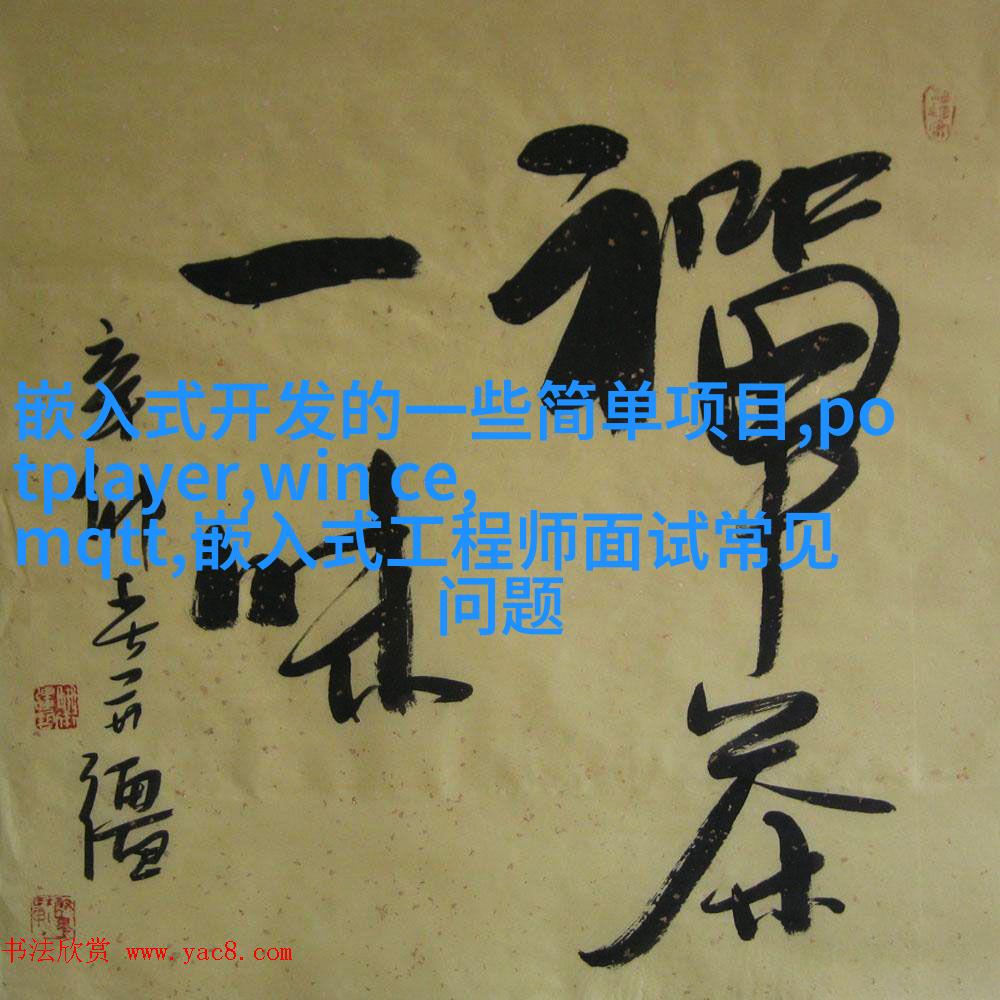 禪茶
一味
嵌入式开发的一些简单项目,po
tplayer,win ce,
mqtt,嵌入式工程师面试常见
问题
书法欣赏 www.yac8.com